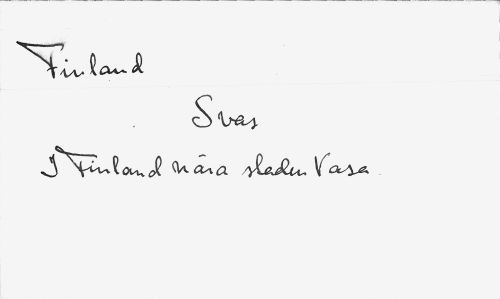 Finland
Svas
I Finland nära staden Vasa